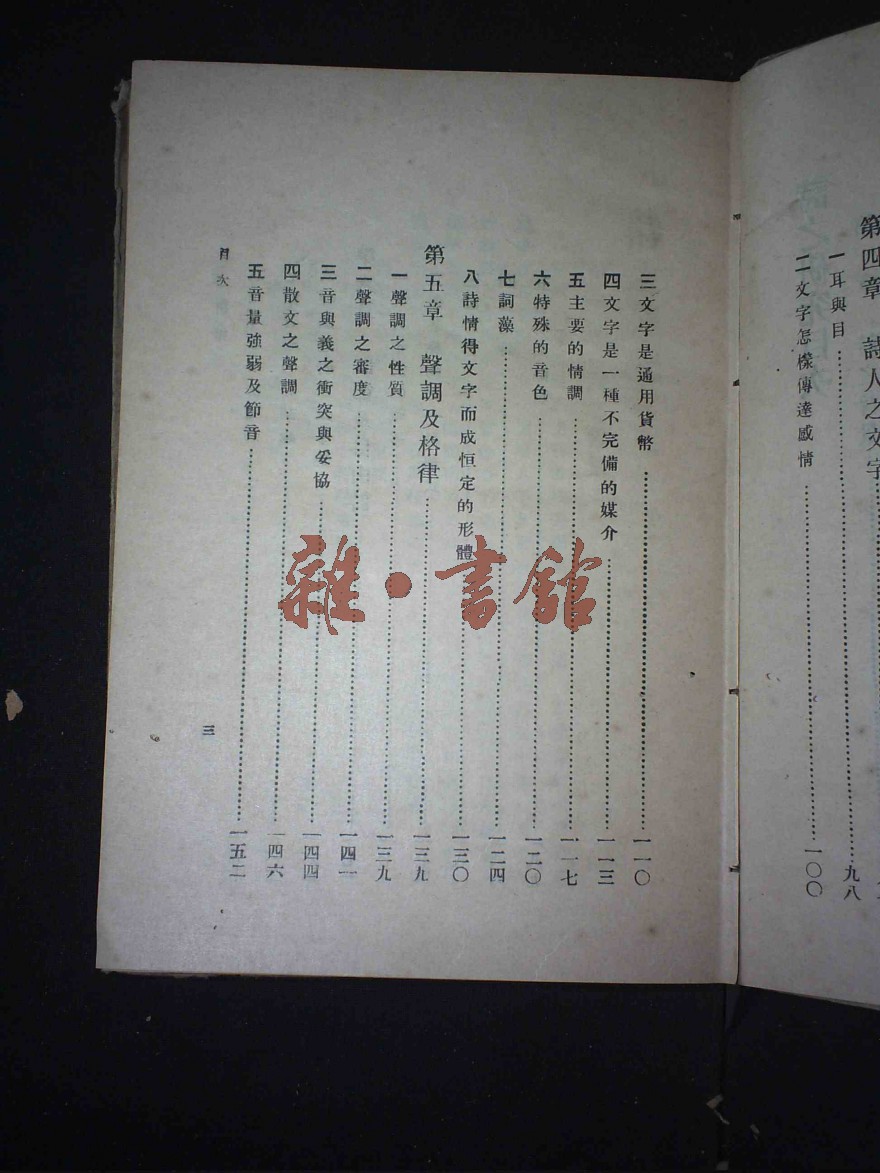 第四章 詩人之文字
一 耳與目 九八
二 文字怎樣傳達感情 一〇〇
三 文字是通用貨幣 一一〇
四 文字是一種不完備的媒介 一一三
五 主要的情調 一一七
六 特殊的音色 一二〇
七 詞藻 一二四
八 詩情得文字而成恒定的形體 一三〇
第五章 聲調及格律 一三九
一 聲調之性質 一三九
二 聲調之審度 一四一
三 音與義之衝突與妥協 一四四
四 散文之聲調 一四六
五 音量強弱及節音 一五二
目次
三
雜·書館